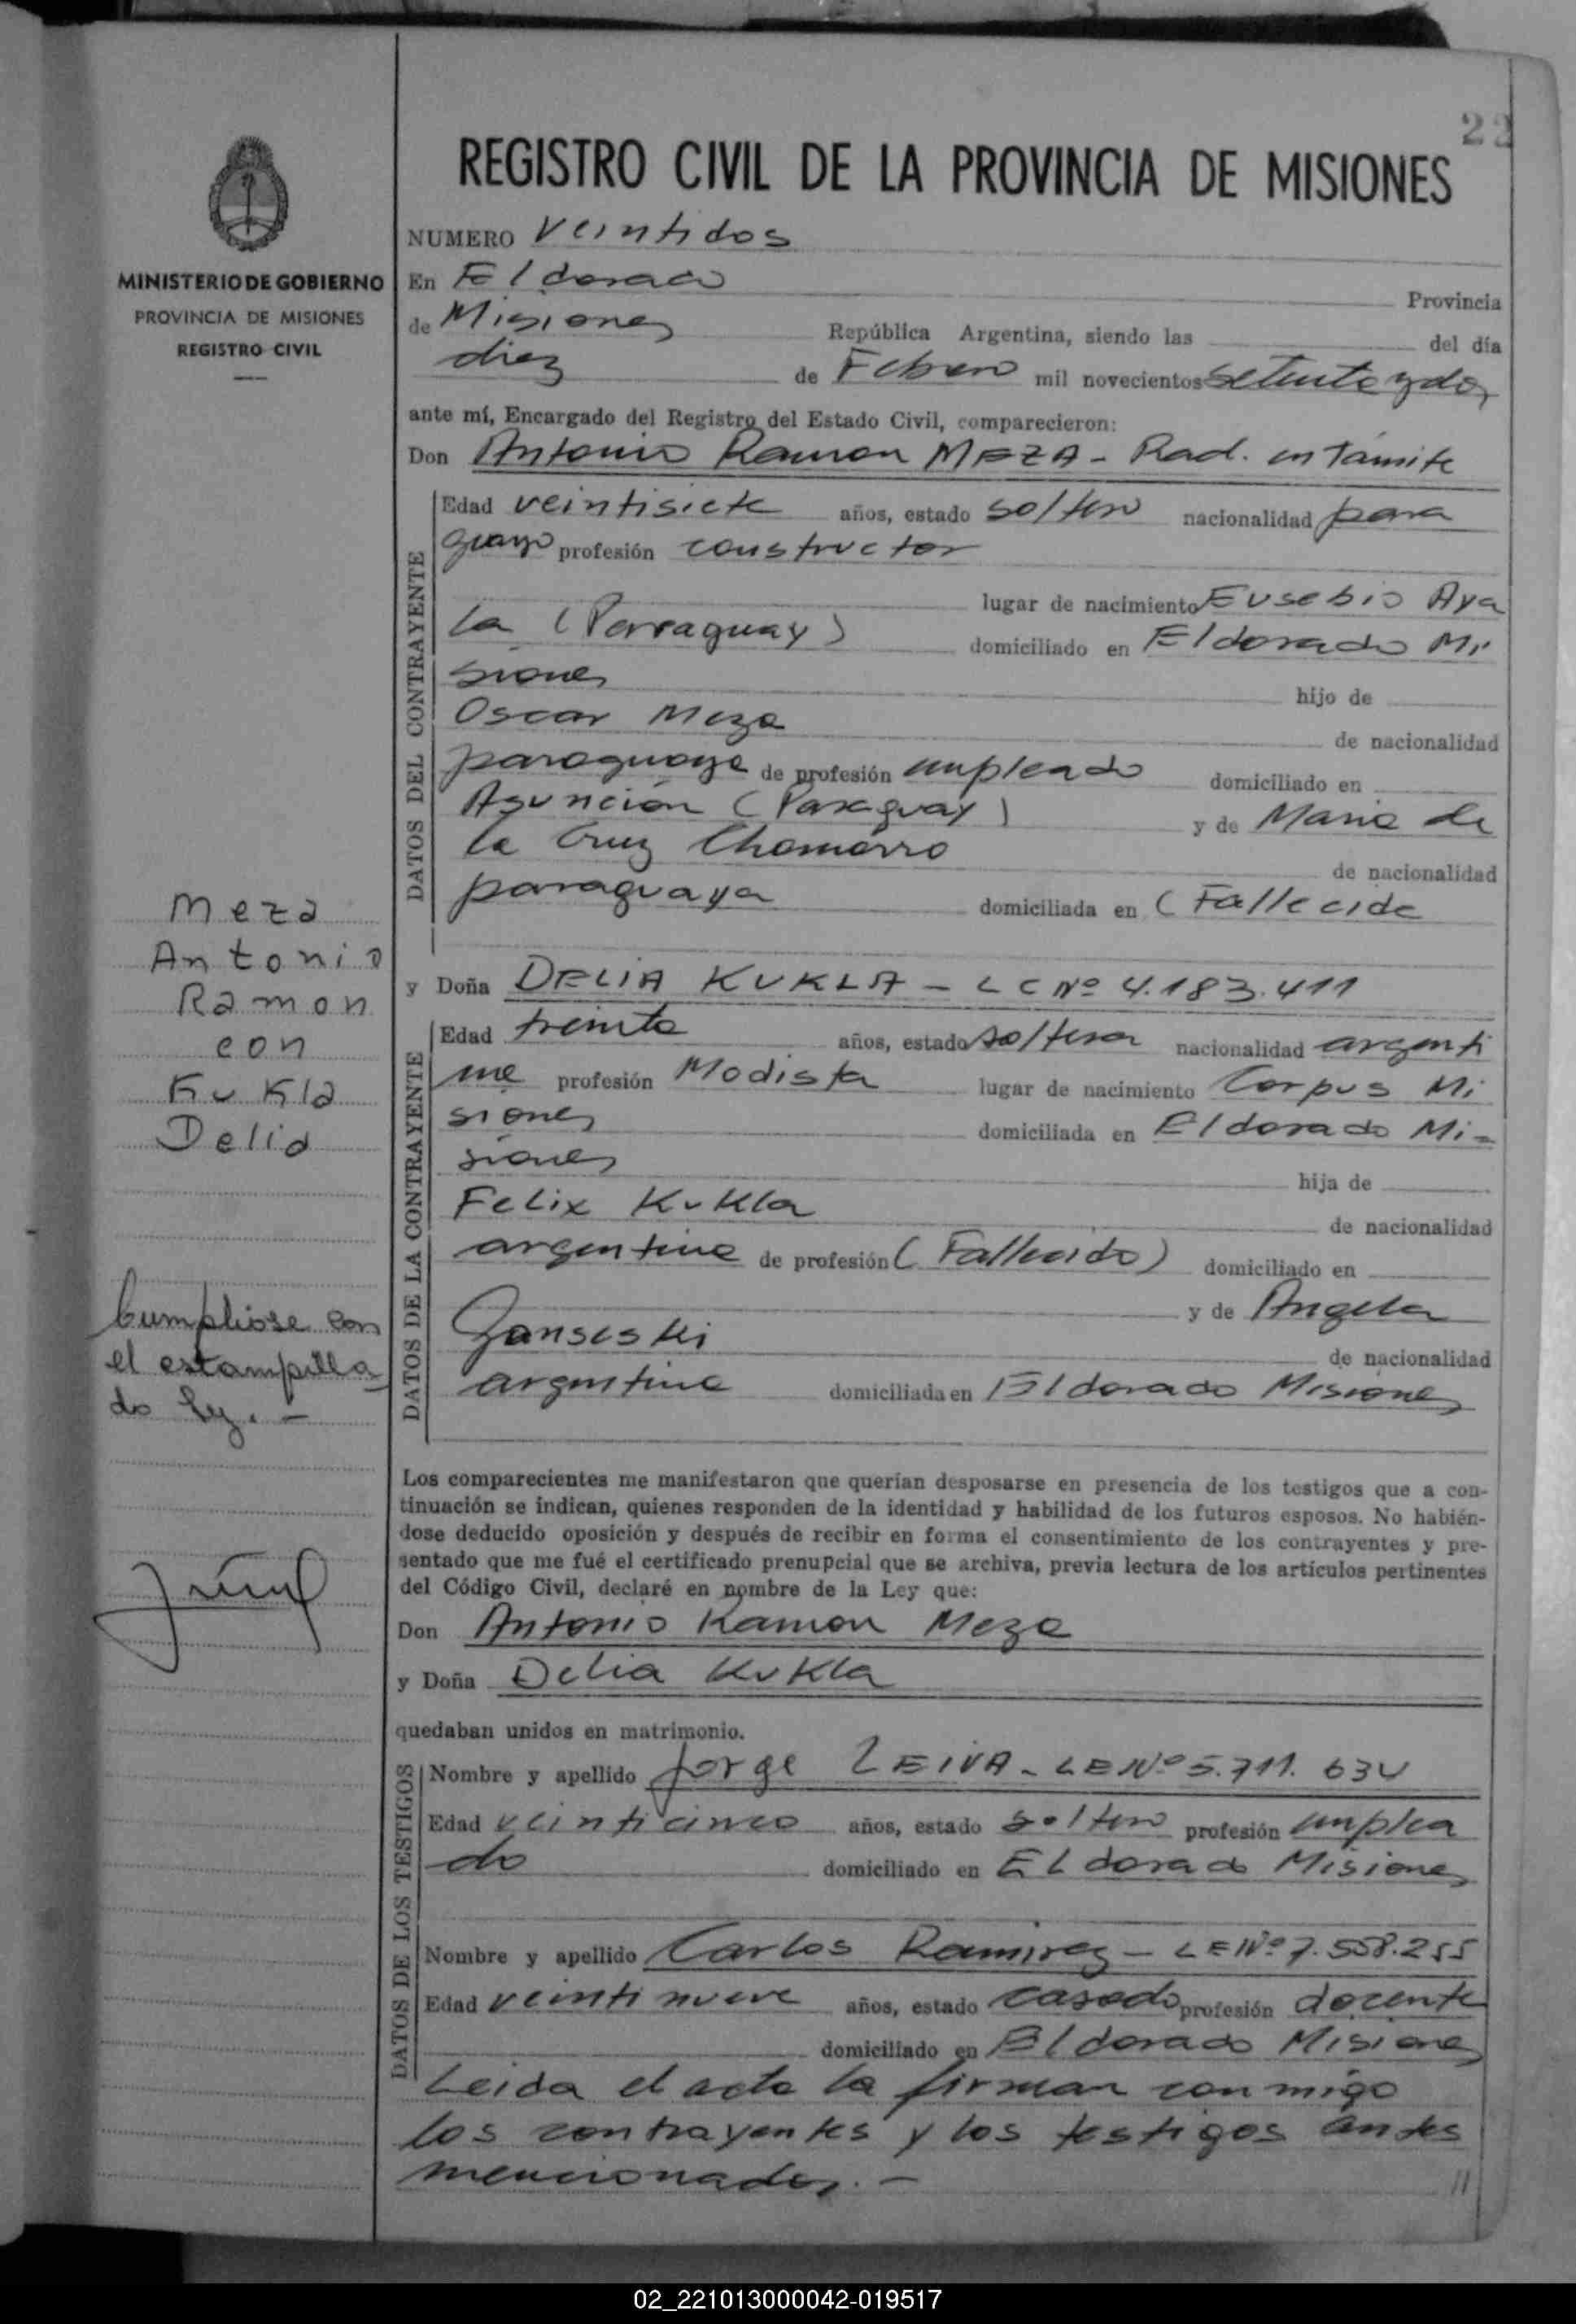 22
REGISTRO CIVIL DE LA PROVINCIA DE MISIONES
MINISTERIO DE GOBIERNO
PROVINCIA DE MISIONES
REGISTRO CIVIL
NUMERO Veintidos
En Eldorado Provincia
de Misiones República Argentina, siendo las del día
diez de Febrero mil novecientos setenta y dos
ante mí, Encargado del Registro del Estado Civil, comparecieron:
Don Antonio Ramon MEZA - Rad. en Tamite
DATOS DEL CONTRAYENTE
Edad veintisiete años, estado soltero nacionalidad para
guayo profesión constructor
lugar de nacimiento Eusebio Aya
la (Parraguay) domiciliado en Eldorado Mi
siones hijo de
Oscar Meza de nacionalidad
paraguaya de profesión empleado domiciliado en
Asunción (Paraguay) y de Maria de
la Cruz Chamorro de nacionalidad
paraguaya domiciliada en (Fallecida
y Doña DELIA KUKLA - LC Nº 4.183.411
DATOS DE LA CONTRAYENTE
Edad treinta años, estado soltera nacionalidad argenti
na profesión Modista lugar de nacimiento Corpus Mi
siones domiciliada en Eldorado Mi-
siones hija de
Felix Kukla de nacionalidad
argentina de profesión (Fallecido) domiciliado en
y de Angela
Janseski de nacionalidad
argentina domiciliada en Eldorado Misiones
Meza
Antonio
Ramon
con
Kukla
Delia
Cumpliose con
el estampilla
do ley. -
Los comparecientes me manifestaron que querían desposarse en presencia de los testigos que a con-
tinuación se indican, quienes responden de la identidad y habilidad de los futuros esposos. No habién-
dose deducido oposición y después de recibir en forma el consentimiento de los contrayentes y pre-
sentado que me fué el certificado prenupcial que se archiva, previa lectura de los artículos pertinentes
del Código Civil, declaré en nombre de la Ley que:
Don Antonio Ramon Meza
y Doña Delia Kukla
quedaban unidos en matrimonio.
DATOS DE LOS TESTIGOS
Nombre y apellido Jorge LEIVA - LE Nº 5.711.634
Edad veinticinco años, estado soltero profesión emplea
do domiciliado en Eldorado Misiones
Nombre y apellido Carlos Ramirez - LE Nº 7.558.255
Edad veintinueve años, estado casado profesión docente
domiciliado en Eldorado Misiones
Leida el acta la firman conmigo
los contrayentes y los testigos antes
mencionados. - //
02_221013000042-019517